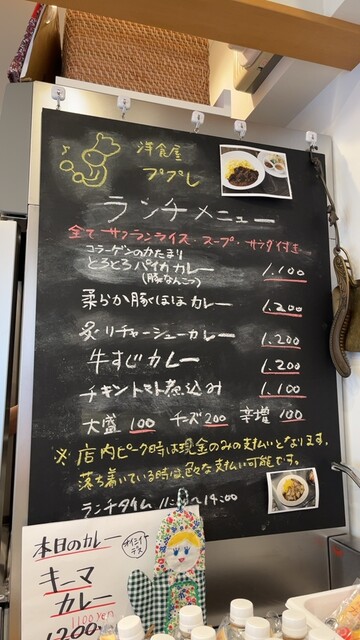 洋食屋
ププレ
ランチメニュー
全てサフランライス・スープ・サラダ付き
コラーゲンのかたまり
とろとろパイカカレー 1,100
(豚なんこつ)
柔らか豚ほほカレー 1,200
炙りチャーシューカレー 1,200
牛すじカレー 1,200
チキントマト煮込み 1,100
大盛 100 チーズ 200 辛増 100
※店内ピーク時は現金のみの支払いとなります.
落ち着いている時は、色々な支払い可能です。
ランチタイム 11:00~14:00
本日のカレー
キーマ
カレー
1100yen
1200